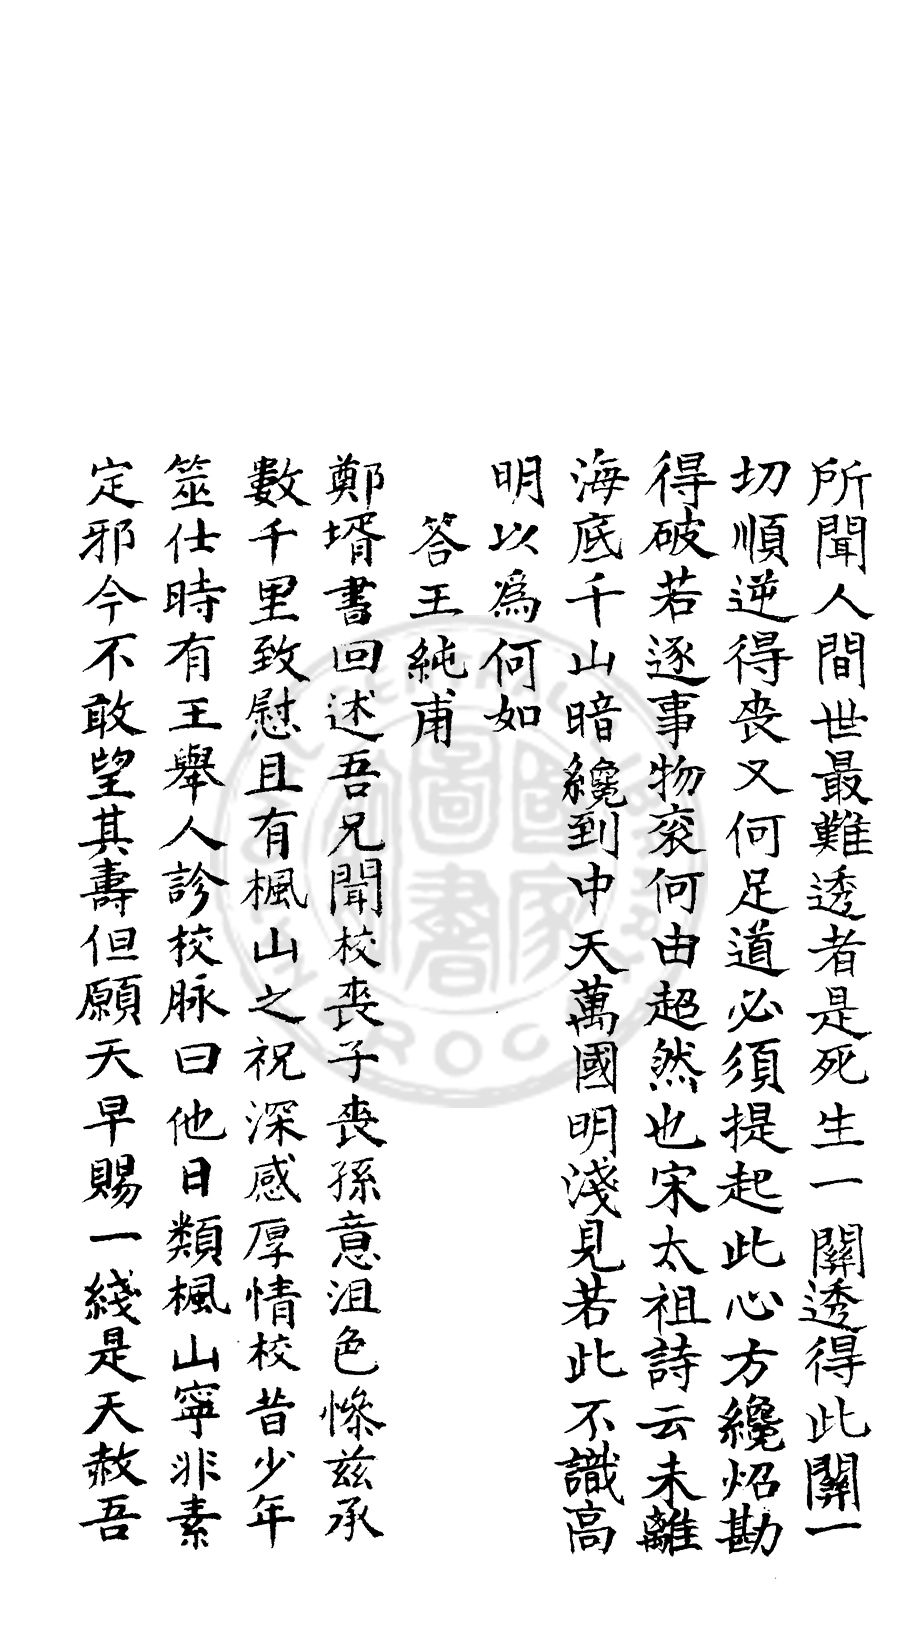 所聞人間世最難透者是死生一關透得此關一
切順逆得喪又何足道必須提起此心方纔炤勘
得破若逐事物衮何由超然也宋太祖詩云未離
海底千山暗纔到中天萬國明淺見若此不識高
明以為何如
答王純甫
鄭壻書回述吾兄聞校喪子喪孫意沮色慘兹承
數千里致慰且有楓山之祝深感厚情校昔少年
筮仕時有王舉人診校脉曰他日類楓山寧非素
定邪今不敢望其壽但願天早賜一綫是天赦吾